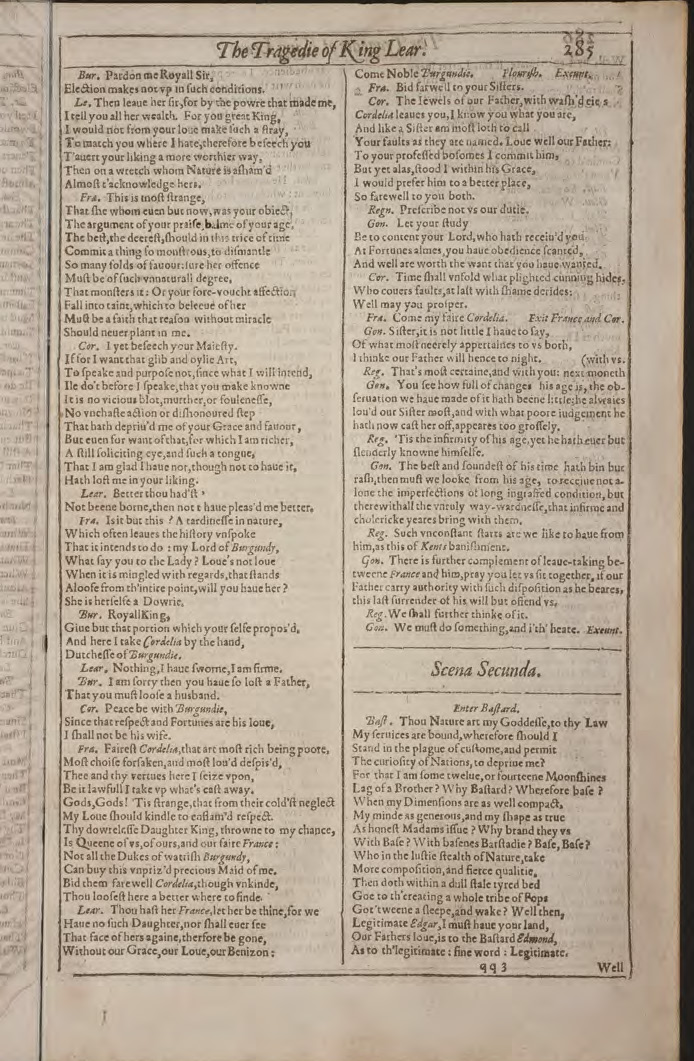 The Tragedie of King Lear.
285
Bur. Pardon me Royall Sir,
Election makes not vp in such conditions.
Le. Then leaue her sir, for by the powre that made me,
I tell you all her wealth. For you great King,
I would not from your loue make such a stray,
To match you where I hate, therefore beseech you
T'auert your liking a more worthier way,
Then on a wretch whom Nature is asham'd
Almost t'acknowledge hers.
Fra. This is most strange,
That she whom euen but now, was your obiect,
The argument of your praise, balme of your age,
The best, the deerest, should in this trice of time
Commit a thing so monstrous, to dismantle
So many folds of fauour: sure her offence
Must be of such vnnaturall degree,
That monsters it: Or your fore-voucht affection
Fall into taint, which to beleeue of her
Must be a faith that reason without miracle
Should neuer plant in me.
Cor. I yet beseech your Maiesty.
If for I want that glib and oylie Art,
To speake and purpose not, since what I will intend,
Ile do't before I speake, that you make knowne
It is no vicious blot, murther, or foulenesse,
No vnchaste action or dishonoured step
That hath depriu'd me of your Grace and fauour,
But euen for want of that, for which I am richer,
A still soliciting eye, and such a tongue,
That I am glad I haue not, though not to haue it,
Hath lost me in your liking.
Lear. Better thou had'st
Not beene borne, then not t haue pleas'd me better.
Fra. Is it but this? A tardinesse in nature,
Which often leaues the history vnspoke
That it intends to do: my Lord of Burgundy,
What say you to the Lady? Loue's not loue
When it is mingled with regards, that stands
Aloofe from th'intire point, will you haue her?
She is herselfe a Dowrie.
Bur. Royall King,
Giue but that portion which your selfe propos'd,
And here I take Cordelia by the hand,
Dutchesse of Burgundie.
Lear. Nothing, I haue sworne, I am firme.
Bur. I am sorry then you haue so lost a Father,
That you must loose a husband.
Cor. Peace be with Burgundie,
Since that respect and Fortunes are his loue,
I shall not be his wife.
Fra. Fairest Cordelia, that art most rich being poore,
Most choise forsaken, and most lou'd despis'd,
Thee and thy vertues here I seize vpon,
Be it lawfull I take vp what's cast away.
Gods, Gods! 'Tis strange, that from their cold'st neglect
My Loue should kindle to enflam'd respect.
Thy dowrelesse Daughter King, throwne to my chance,
Is Queene of vs, of ours, and our faire France:
Not all the Dukes of watrish Burgundy,
Can buy this vnpriz'd precious Maid of me.
Bid them farewell Cordelia, though vnkinde,
Thou loosest here a better where to finde.
Lear. Thou hast her France, let her be thine, for we
Haue no such Daughter, nor shall euer see
That face of hers againe, therfore be gone,
Without our Grace, our Loue, our Benizon:
Come Noble Burgundie. Flourish. Exeunt.
Fra. Bid farwell to your Sisters.
Cor. The Iewels of our Father, with wash'd eies
Cordelia leaues you, I know you what you are,
And like a Sister am most loth to call
Your faults as they are named. Loue well our Father:
To your professed bosomes I commit him,
But yet alas, stood I within his Grace,
I would prefer him to a better place,
So farewell to you both.
Regn. Prescribe not vs our dutie.
Gon. Let your study
Be to content your Lord, who hath receiu'd you
At Fortunes almes, you haue obedience scanted,
And well are worth the want that you haue wanted.
Cor. Time shall vnfold what plighted cunning hides,
Who couers faults, at last with shame derides:
Well may you prosper.
Fra. Come my faire Cordelia. Exit France and Cor.
Gon. Sister, it is not little I haue to say,
Of what most neerely appertaines to vs both,
I thinke our Father will hence to night. (with vs.
Reg. That's most certaine, and with you: next moneth
Gon. You see how full of changes his age is, the ob-
seruation we haue made of it hath beene little; he alwaies
lou'd our Sister most, and with what poore iudgement he
hath now cast her off, appeares too grossely.
Reg. 'Tis the infirmity of his age, yet he hath euer but
slenderly knowne himselfe.
Gon. The best and soundest of his time hath bin but
rash, then must we looke from his age, to receiue not a-
lone the imperfections of long ingraffed condition, but
therewithall the vnruly way-wardnesse, that infirme and
cholericke yeares bring with them.
Reg. Such vnconstant starts are we like to haue from
him, as this of Kents banishment.
Gon. There is further complement of leaue-taking be-
tweene France and him, pray you let vs sit together, if our
Father carry authority with such disposition as he beares,
this last surrender of his will but offend vs.
Reg. We shall further thinke of it.
Gon. We must do something, and i'th' heate. Exeunt.
Scena Secunda.
Enter Bastard.
Bast. Thou Nature art my Goddesse, to thy Law
My seruices are bound, wherefore should I
Stand in the plague of custome, and permit
The curiosity of Nations, to depriue me?
For that I am some twelue, or fourteene Moonshines
Lag of a Brother? Why Bastard? Wherefore base?
When my Dimensions are as well compact,
My minde as generous, and my shape as true
As honest Madams issue? Why brand they vs
With Base? With basenes Barstadie? Base, Base?
Who in the lustie stealth of Nature, take
More composition, and fierce qualitie,
Then doth within a dull stale tyred bed
Goe to th'creating a whole tribe of Fops
Got 'tweene a sleepe, and wake? Well then,
Legitimate Edgar, I must haue your land,
Our Fathers loue, is to the Bastard Edmond,
As to th'legitimate: fine word: Legitimate.
qq3
Well